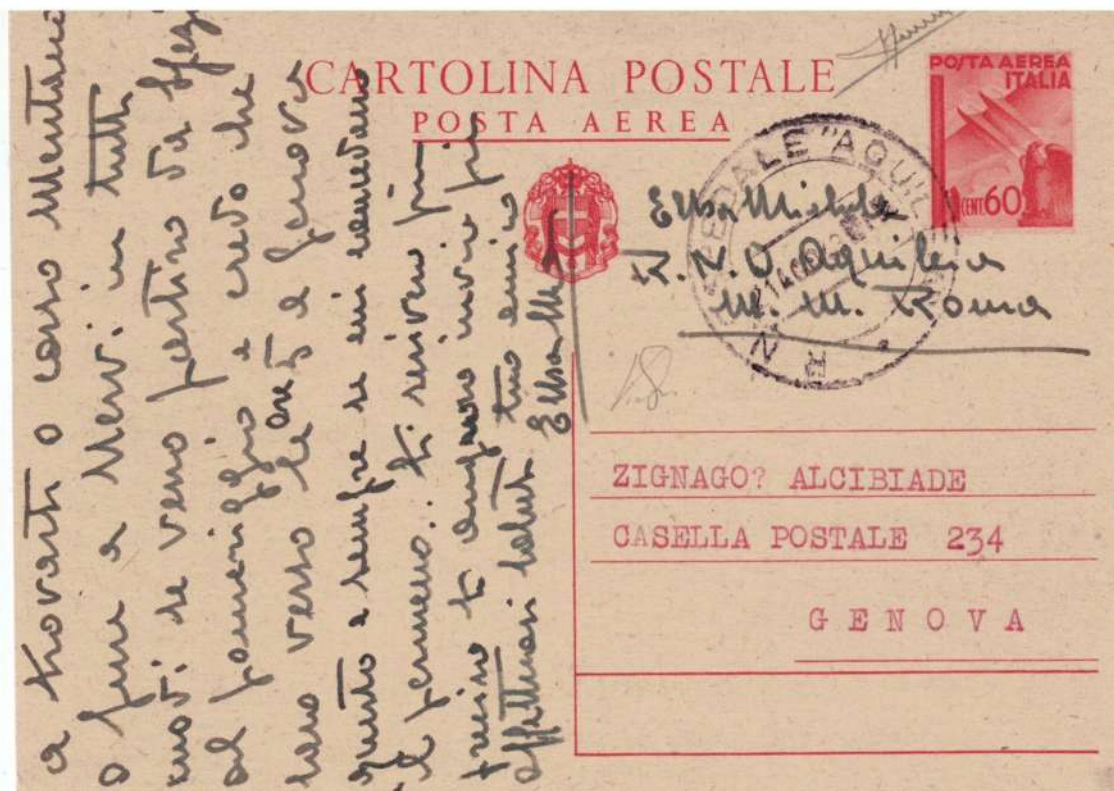 CARTOLINA POSTALE
POSTA AEREA
POSTA AEREA
ITALIA
CENT. 60
OSPEDALE "AQUIL
R N
Elba Michele
R. N. O. Aquileia
M. M. Roma
ZIGNAGO? ALCIBIADE
CASELLA POSTALE 234
GENOVA
a trovarti o corso Mentana
o pure a Nervi in tutti
modi se verro partiro da Spezia
al pomeriggio e credo che
saro verso le ore 5 a Genova
questo e sempre se mi concedano
il permesso.. ti scrivero più
preciso ti auguro invio più
affettuosi saluti tuo amico
Elba M